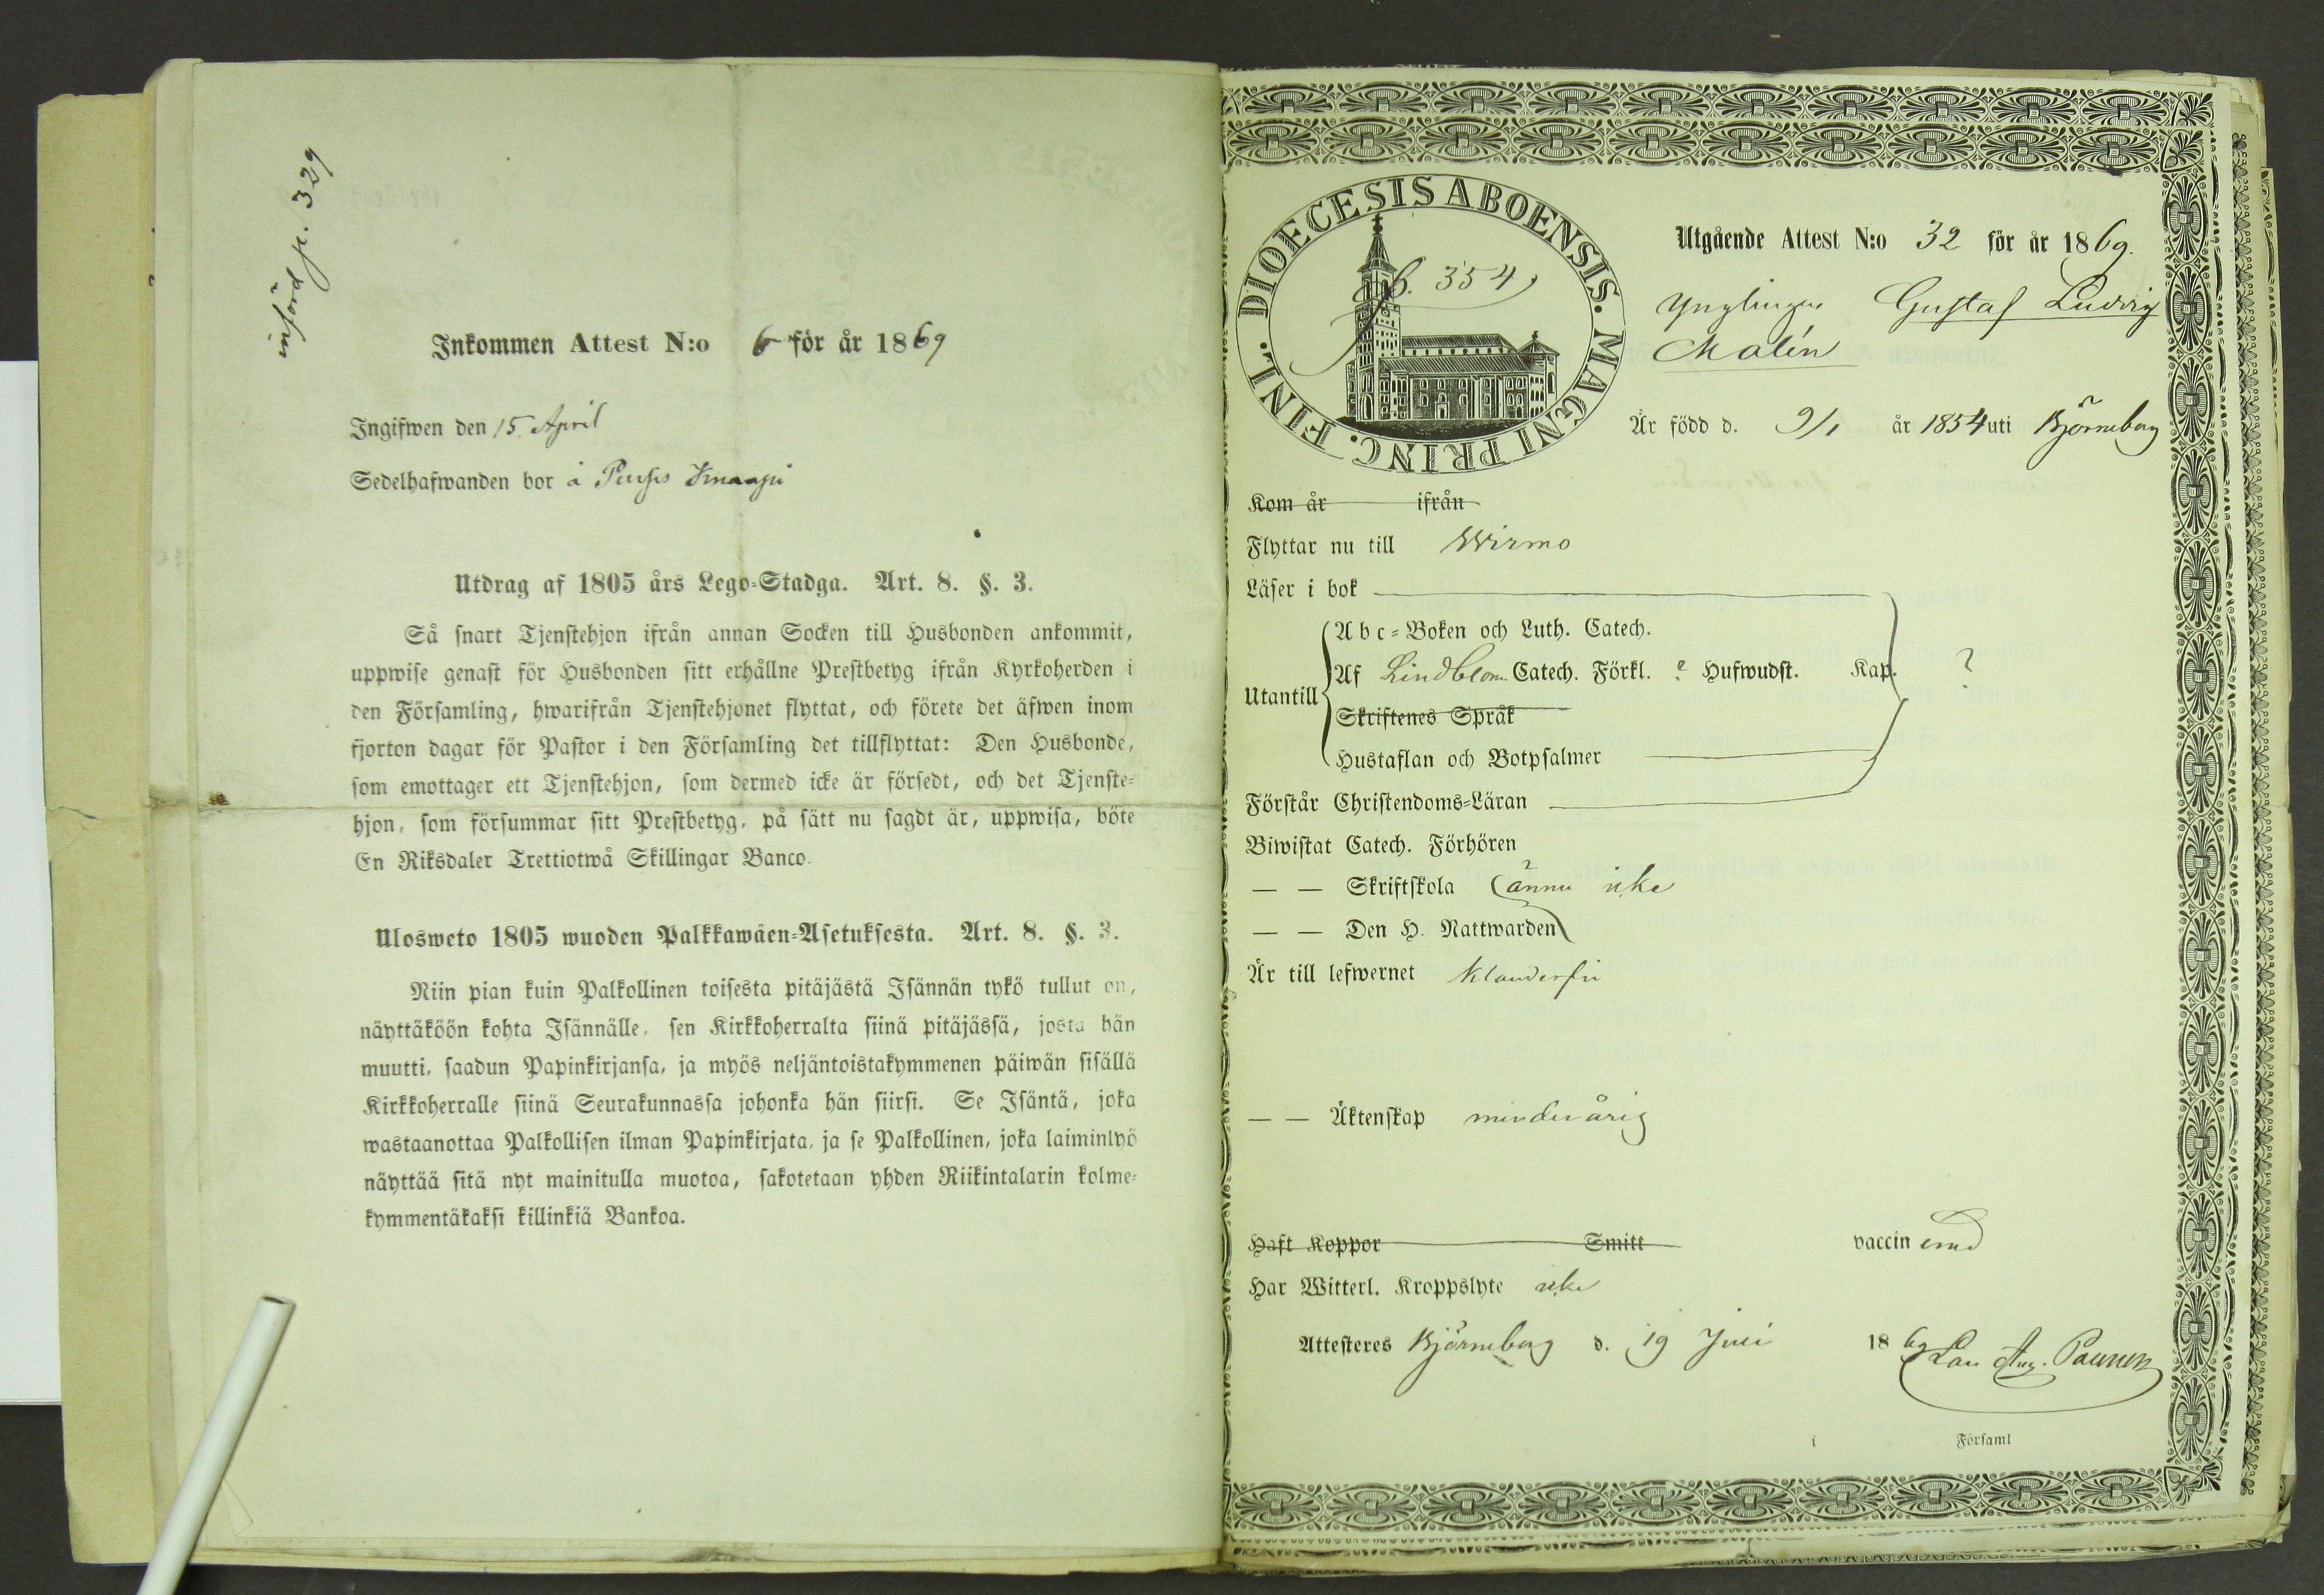 införd p. 329
Inkommen Attest N:o 6 för år 1869
Ingifwen den 15 April
Sedelhafwanden bor å
Utdrag af 1805 års Lego-Stadga. Art. 8. §. 3.
Så snart Tjenstehjon ifrån annan Socken till Husbonden ankommit,
uppwise genast för Husbonden sitt erhållne Prestbetyg ifrån Kyrkoherden i
den Församling, hwarifrån Tjenstehjonet flyttat, och förete det äfwen inom
fjorton dagar för Pastor i den Församling det tillflyttat: Den Husbonde,
som emottager ett Tjenstehjon, som dermed icke är försedt, och det Tjenste-
hjon, som försummar sitt Prestbetyg, på sätt nu sagdt är, uppwisa, böte
En Riksdaler Trettiotwå Skillingar Banco.
Ulosweto 1805 wuoden Palkkawäen-Asetuksesta. Art. 8. §. 3.
Niin pian kuin Palkollinen toisesta pitäjästä Isännän tykö tullut on,
näyttäköön kohta Isännälle, sen Kirkkoherralta siinä pitäjässä, josta hän
muutti, saadun Papinkirjansa, ja myös neljäntoistakymmenen päiwän sisällä
Kirkkoherralle siinä Seurakunnassa johonka hän siirsi. Se Isäntä, joka
wastaanottaa Palkollisen ilman Papinkirjata, ja se Palkollinen, joka laiminlyö
näyttää sitä nyt mainitulla muotoa, sakotetaan yhden Riikintalarin kolme-
kymmentäkaksi killinkiä Bankoa.
DIOECESIS ABOENSIS. MAGNI PRINC. FINL.
p. 354
Utgående Attest N:o 32 för år 1869.
Ynglingen Gustaf Ludvig
Malén
Är född d. 9/1 år 1854 uti Björneborg
Kom år ifrån
Flyttar nu till Wirmo
Läser i bok
Utantill
Abc-Boken och Luth. Catech.
Af Lindblom Catech. Förkl. ? Hufwudst. Kap. ?
Skriftenes Språk
Hustaflan och Botpsalmer
Förstår Christendoms-Läran
Biwistat Catech. Förhören
— — Skriftskola ännu icke
— — Den H. Nattwarden
Är till lefwernet klanderfri
— — Äktenskap minderårig
Haft Koppor Smitt vaccinerad
Har Witterl. Kroppslyte icke
Attesteres Björneborg d. 19 Juli 1869
Aug.
i Församl